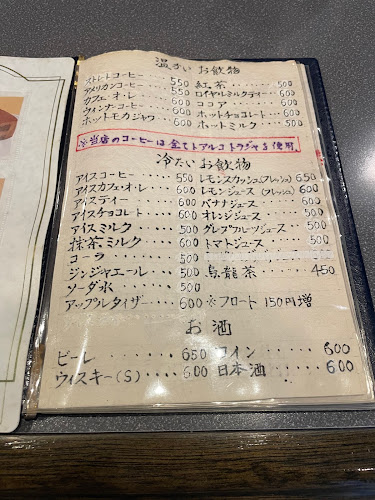 温かいお飲物
ストレートコーヒー‥‥550 紅茶‥‥‥500
アメリカンコーヒー‥‥550 ロイヤルミルクティー‥‥600
カフェ・オ・レ‥‥‥600 ココア‥‥‥600
ウィンナーコーヒー‥‥600 ホットチョコレート‥‥600
ホットモカジャワ‥‥600 ホットミルク‥‥500
※当店のコーヒーは全てトアルコトラジャを使用。
冷たいお飲物
アイスコーヒー‥‥550 レモンスカッシュ(フレッシュ)650
アイスカフェ・オ・レ‥‥600 レモンジュース(フレッシュ)600
アイスティー‥‥500 バナナジュース‥‥600
アイスチョコレート‥‥600 オレンジジュース‥‥500
アイスミルク‥‥500 グレープフルーツジュース‥‥500
抹茶ミルク‥‥600 トマトジュース‥‥500
コーラ‥‥500
ジンジャエール‥‥500 烏龍茶‥‥450
ソーダ水‥‥500
アップルタイザー‥‥600 ※フロート150円増
お酒
ビール‥‥650 ワイン‥‥600
ウィスキー(S)‥‥600 日本酒‥‥600